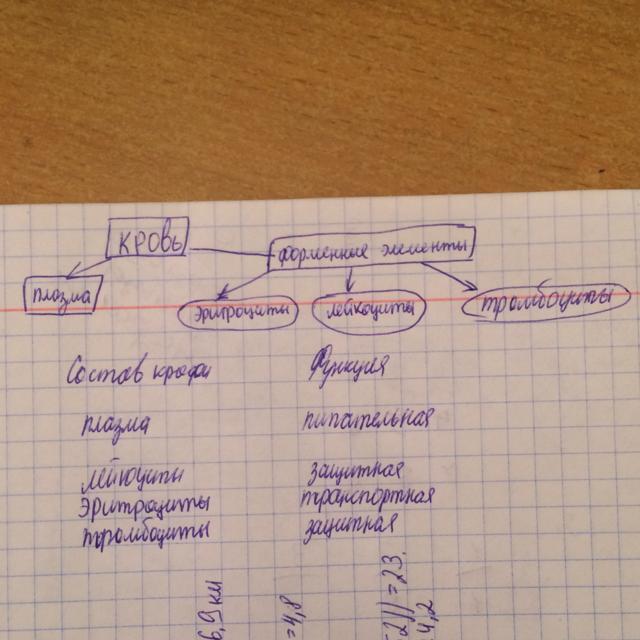 кровь
форменные элементы
плазма
эритроциты лейкоциты тромбоциты
Состав крови Функция
плазма питательная
лейкоциты защитная
Эритроциты транспортная
тромбоциты защитная
6,9 км
=4,8
2)) = 23.
4,2